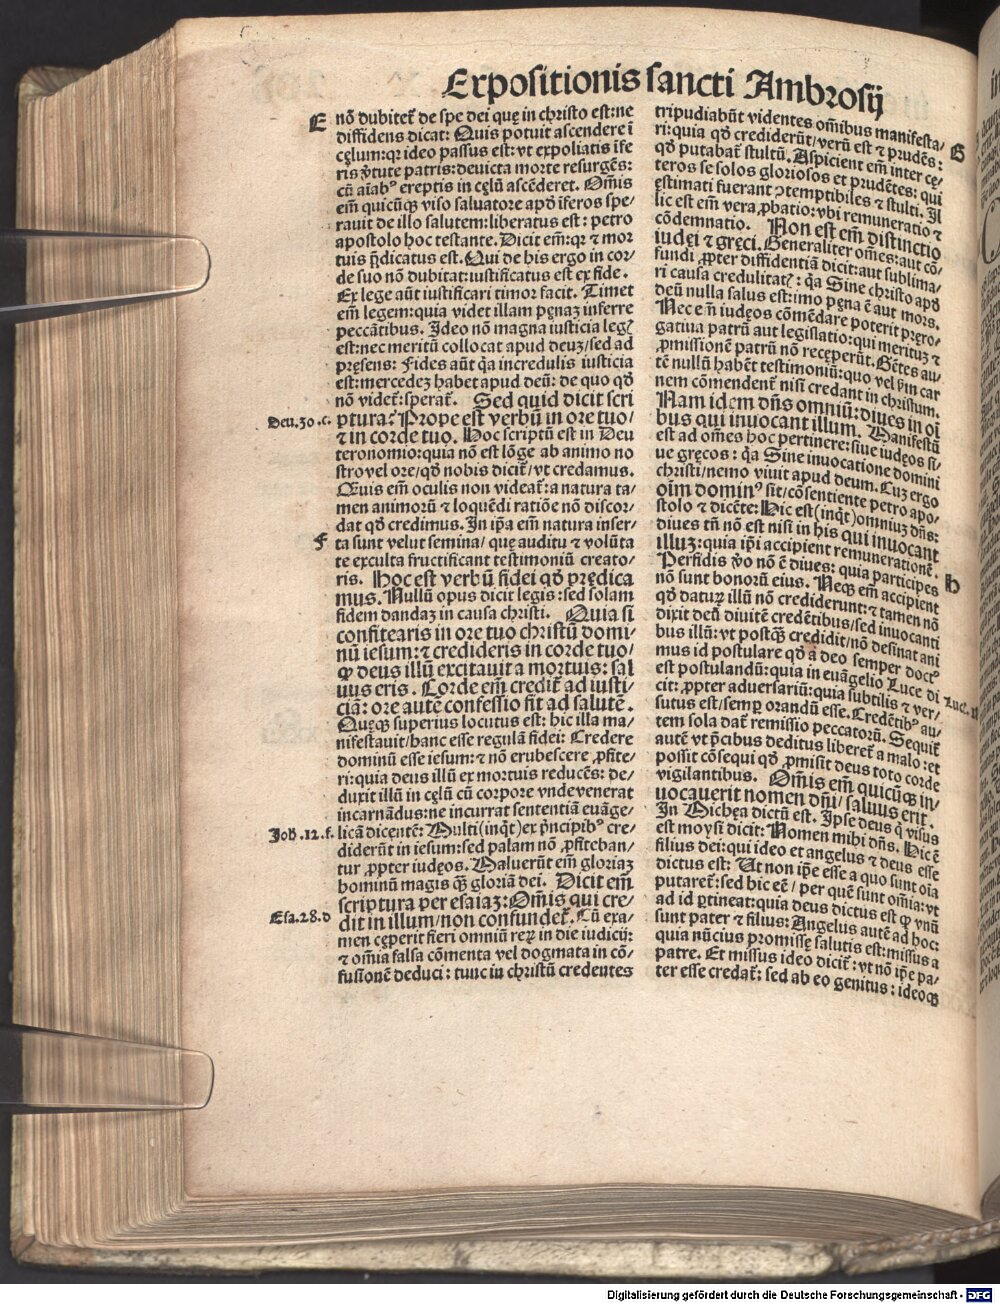 Expositionis sancti Ambrosij
E
nõ dubitet̃ de spe dei quę in christo est: ne
diffidens dicat: Quis potuit ascendere ĩ
cęlum: qꝛ ideo passus est: vt expoliatis ĩfe
ris v̾tute patris: deuicta morte resurgẽs:
cũ aĩabꝰ ereptis in cęlũ ascẽderet. Om̃is
em̃ quicũqꝫ viso saluatore apđ ĩferos spe-
rauit de illo salutem: liberatus est: petro
apostolo hoc testante. Dicit em̃: qꝛ ⁊ mor
tuis p̃dicatus est. Qui de his ergo in cor/
de suo nõ dubitat: iustificatus est ex fide.
Ex lege aũt iustificari timor facit. Timet
em̃ legem: quia videt illam pęnaꝫ inferre
peccãtibus. Ideo nõ magna iusticia legꝭ
est: nec meritũ collocat apud deuꝫ/ sed ad
pręsens: Fides aũt q̃a incredulis iusticia
est: mercedeꝫ habet apud deũ: de quo qđ
nõ videt̃: sperat̃. Sed quid dicit scri
Deu. 30. c.
ptura? Prope est verbũ in ore tuo/
⁊ in corde tuo. Hoc scriptũ est in Deu
teronomio: quia nõ est lõge ab animo no
stro vel ore/ qđ nobis dicit̃/ vt credamus.
Quis em̃ oculis non videat̃: a natura ta-
men animorũ ⁊ loquẽdi ratiõe nõ discor/
dat qđ credimus. In ip̃a em̃ natura inser/
F
ta sunt velut semina/ quę auditu ⁊ volũta
te exculta fructificant testimoniũ creato/
ris. Hoc est verbũ fidei qđ prędica
mus. Nullũ opus dicit legis: sed solam
fidem dandaꝫ in causa christi. Quia si
confitearis in ore tuo christũ domi/
nũ iesum: ⁊ credideris in corde tuo/
ꝙ deus illũ excitauit a mortuis: sal
uus eris. Corde em̃ credit̃ ad iusti/
ciã: ore autẽ confessio fit ad salutẽ.
Quęqꝫ superius locutus est: hic illa ma/
nifestauit/ hanc esse regulã fidei: Credere
dominũ esse iesum: ⁊ nõ erubescere ꝓfite/
ri: quia deus illũ ex mortuis reducẽs: de/
duxit illũ in cęlũ cũ corpore vnde venerat
incarnãdus: ne incurrat sententiã euãge/
Joh. 12. f.
licã dicentẽ: Multi (inq̃t) ex p̃ncipibꝰ cre/
diderũt in iesum: sed palam nõ ꝓfiteban/
tur ꝓpter iudęos. Maluerũt em̃ gloriaꝫ
hominũ magis qꝫ̃ gloriã dei. Dicit em̃
scriptura per esaiaꝫ: Om̃is qui cre/
Esa. 28. d
dit in illum/ non confundet̃. Cũ exa/
men cęperit fieri omniũ reꝝ in die iudicij:
⁊ om̃ia falsa cõmenta vel dogmata in cõ/
fusionẽ deduci: tunc in christũ credentes
tripudiabũt videntes om̃ibus manifesta/
G
ri: quia qđ crediderũt/ verũ est ⁊ prudẽs:
qđ putabat̃ stultũ. Aspicient em̃ inter cę/
teros se solos gloriosos et prudẽtes: qui
ęstimati fuerant ꝯtemptibiles ⁊ stulti. Il
lic est em̃ vera ꝓbatio: vbi remuneratio ⁊
cõdemnatio. Non est em̃ distinctio
iudęi ⁊ gręci. Generaliter om̃es: aut cõ/
fundi ꝓpter diffidentiã dicit: aut sublima/
ri causa credulitatꝭ: q̃a Sine christo apđ
deũ nulla salus est: imo pęna ẽ aut mors.
Nec em̃ iudęos cõmẽdare poterit pręro/
gatiua patrũ aut legislatio: qui merituꝫ ⁊
ꝓmissionẽ patrũ nõ recęperũt. Gẽtes au/
tẽ nullũ habẽt testimoniũ: quo vel ẜm car
nem cõmendent̃ nisi credant in christum.
Nam idem dñs omniũ: diues in oĩ
bus qui inuocant illum. Manifestũ
est ad om̃es hoc pertinere: siue iudęos si/
ue gręcos: q̃a Sine inuocatione domini
christi/ nemo viuit apud deum. Cuꝫ ergo
oĩm dominꝰ sit/ cõsentiente petro apo/
stolo ⁊ dicẽte: Hic est (inq̃t) omniuꝫ dñs:
diues tñ nõ est nisi in his qui inuocant
illuꝫ: quia ip̃i accipient remunerationẽ.
Perfidis v̾o nõ ẽ diues: quia participes
H
nõ sunt bonorũ eius. Neqꝫ em̃ accipient
qđ datuꝝ illũ nõ crediderunt: ⁊ tamen nõ
dixit deũ diuitẽ credẽtibus/ sed inuocanti
bus illũ: vt postqꝫ̃ credidit/ nõ desinat ani
mus id postulare qđ a deo semper doctꝰ
est postulandũ: quia in euãgelio Luce di
Luc. 18
cit: ꝓpter aduersariũ: quia subtilis ⁊ ver/
sutus est/ semꝑ orandũ esse. Credẽtibꝰ au/
tem sola dat̃ remissio peccatorũ. Sequit̃
autẽ vt p̃cibus deditus liberet̃ a malo: et
possit cõsequi qđ ꝓmisit deus toto corde
vigilantibus. Om̃is em̃ quicũqꝫ in/
uocauerit nomen dñi/ saluus erit.
In Michęa dictũ est. Ipse deus q̃ visus
est moysi dicit: Nomen mihi dñs. Hic ẽ
filius dei: qui ideo et angelus ⁊ deus esse
dictus est: Ut non ip̃e esse a quo sunt oĩa
putaret̃: sed hic eẽ/ per quẽ sunt om̃ia: vt
ad id ꝑtineat: quia deus dictus est ꝙ vnũ
sunt pater ⁊ filius: Angelus autẽ ad hoc:
quia nũcius promissę salutis est: missus a
patre. Et missus ideo dicit̃: vt nõ ip̃e pa/
ter esse credat̃: sed ab eo genitus: ideoqꝫ
Digitalisierung gefördert durch die Deutsche Forschungsgemeinschaft - DFG